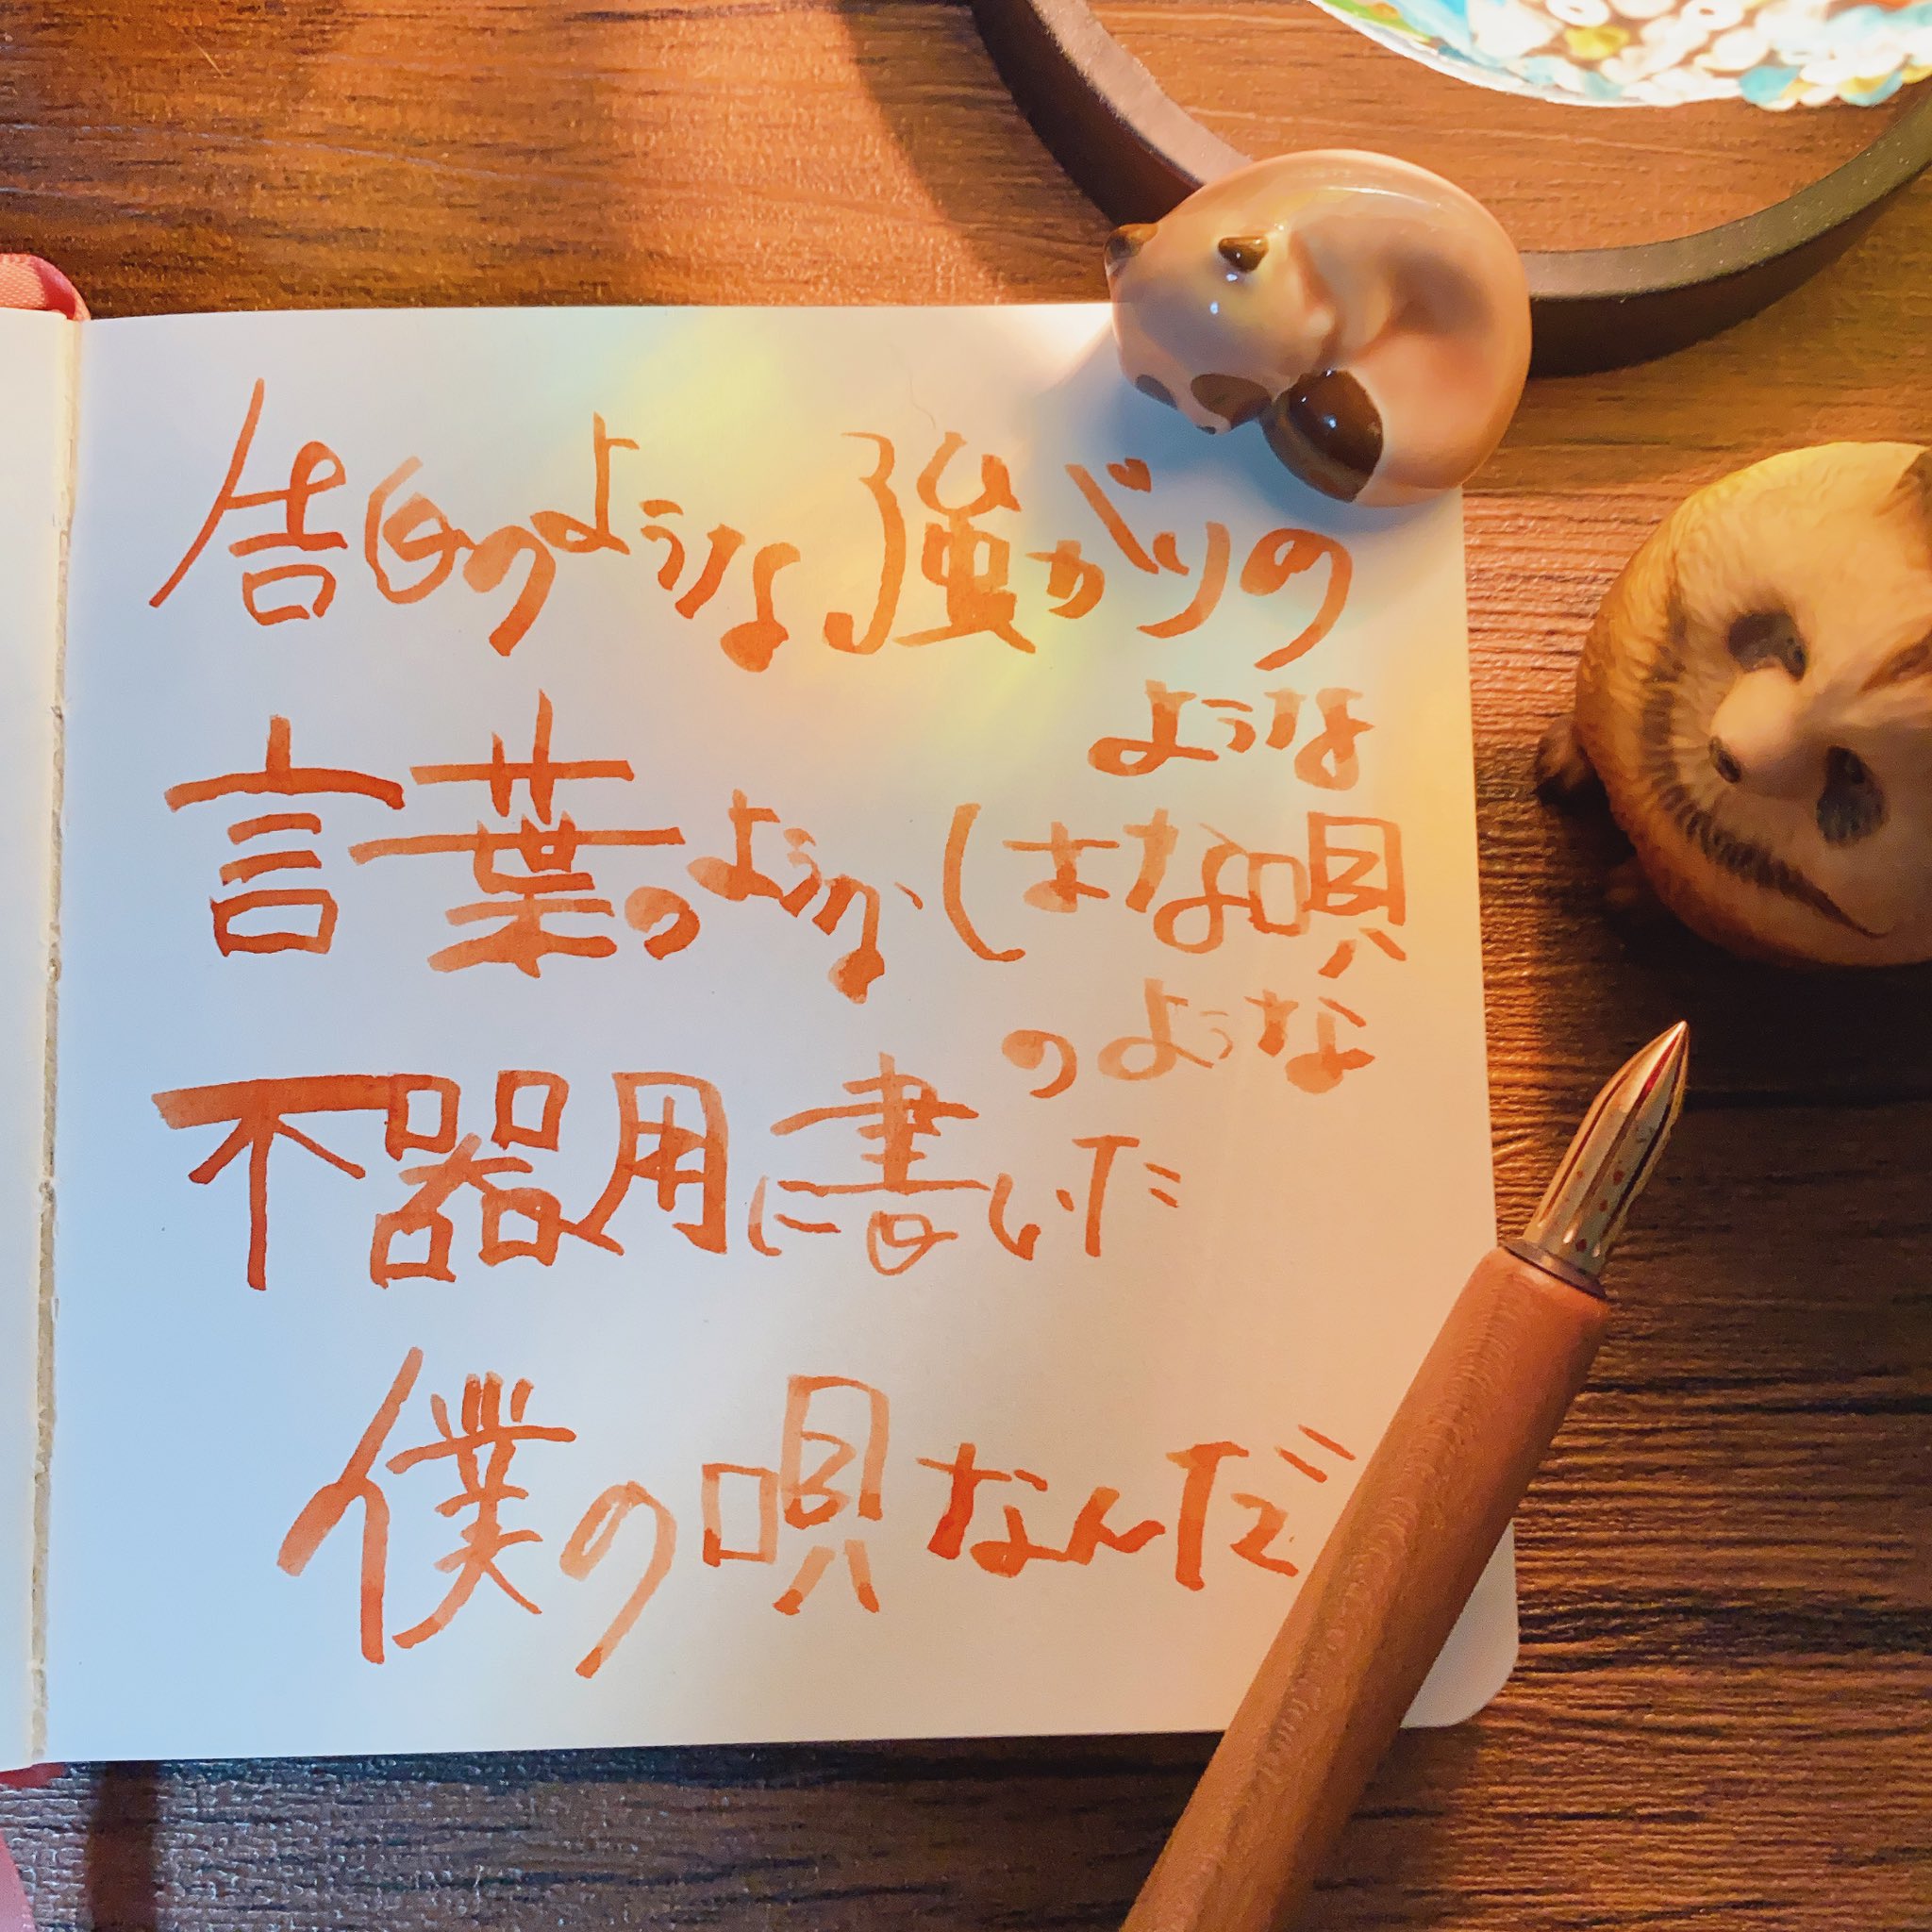 告白のような強がりの
ような
言葉のようなはな唄
のような
不器用に書いた
僕の唄なんだ